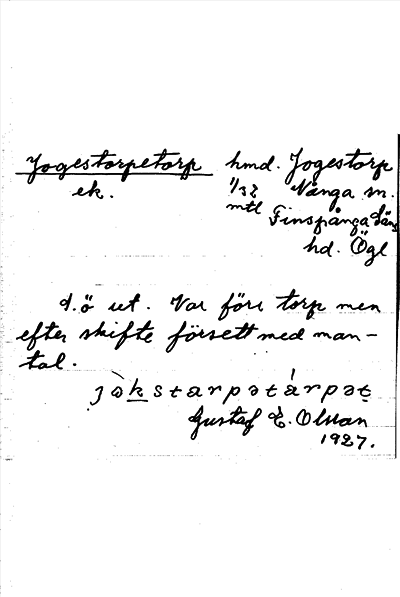 Jogestorpetorp hmd. Jogestorp
ek. 1/32 Vånga sn.
mtl Finspånga läns
hd. Ögl
d.ö ut. Var förr torp men
efter skifte försett med man-
tal.
ȷòkstarpətárpət
Gustaf E. Olsson
1927.